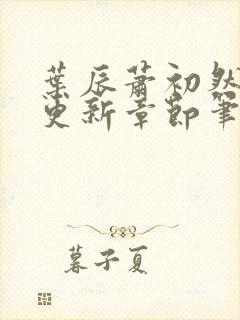 葉辰蕭初然
更新章節筆
暮子夏